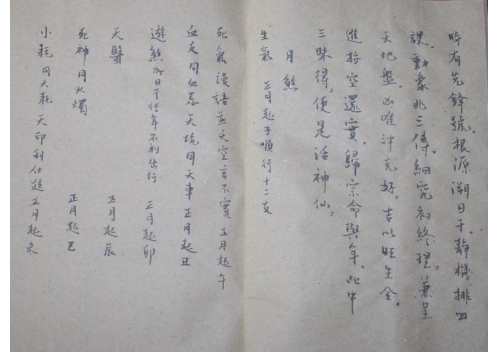 時有先鋒號。根源溯日干。静機排四
課。動象兆三傳。細究初終理。兼呈
天地盤。凶唯沖克妙。吉以旺生全。
進將空還實。歸宗命與年。此中
三昧得。便是活神仙。
月煞
生氣 正月起子順行十二支
死氣謾語並天空言不實 正月起午
血支同血忌天坑同天車 正月起丑
遊煞 正月起卯
天醫 正月起辰
死神同火燭 正月起巳
小耗同天耗天印利仕進 正月起未